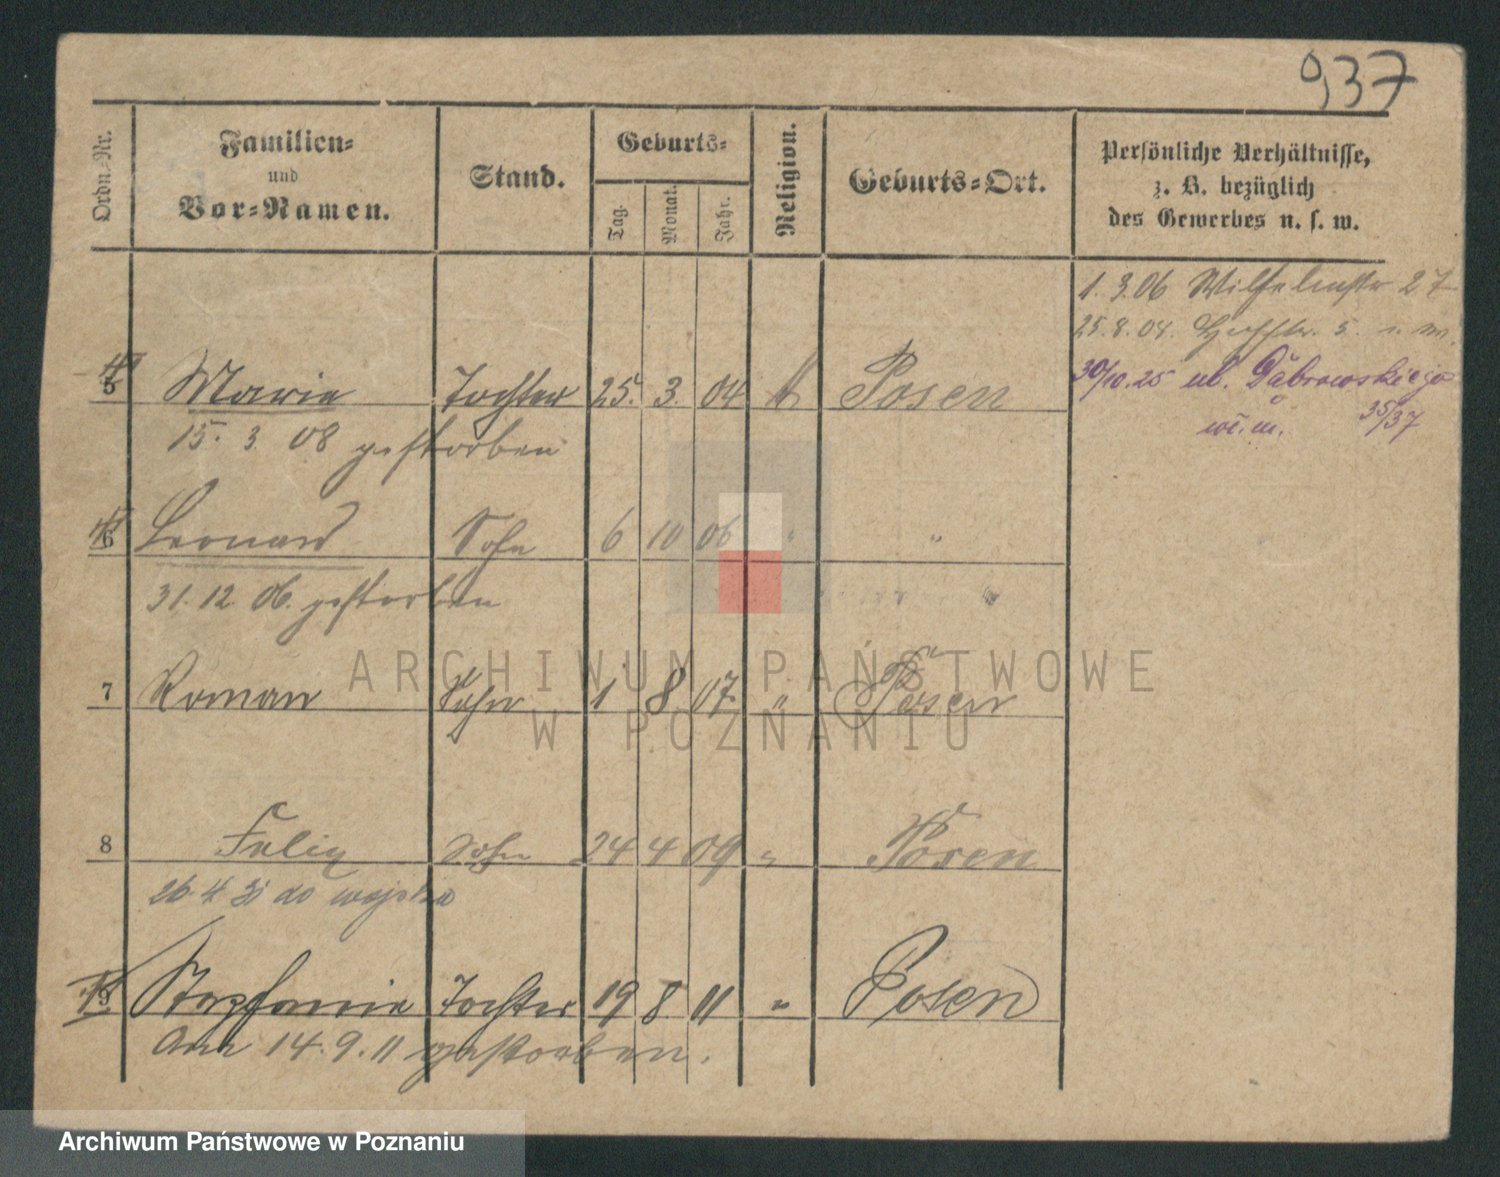 937
Ordn.-Nr.
Familien-
und
Vor-Namen.
Stand.
Geburts-
Tag.
Monat.
Jahr.
Religion.
Geburts-Ort.
Persönliche Verhältnisse,
z. B. bezüglich
des Gewerbes u. s. w.
1. 3.06 Wilhelmstr 27
25.8.04. 5.
30/10.25 ul. Dąbrowskiego
35/37
w. m.
5 Marie Tochter 25. 3. 04 k Posen
15. 3. 08 gestorben
6 Leonard Sohn 6 10 06 " "
31. 12. 06. gestorben
7 Roman Sohn 1 8 07 " Posen
8 Felix Sohn 24 4 09 " Posen
26. 4. 31 do wojska
9 Stephanie Tochter 19 8 11 " Posen
Am 14. 9. 11 gestorben.
ARCHIWUM PAŃSTWOWE
W POZNANIU
Archiwum Państwowe w Poznaniu